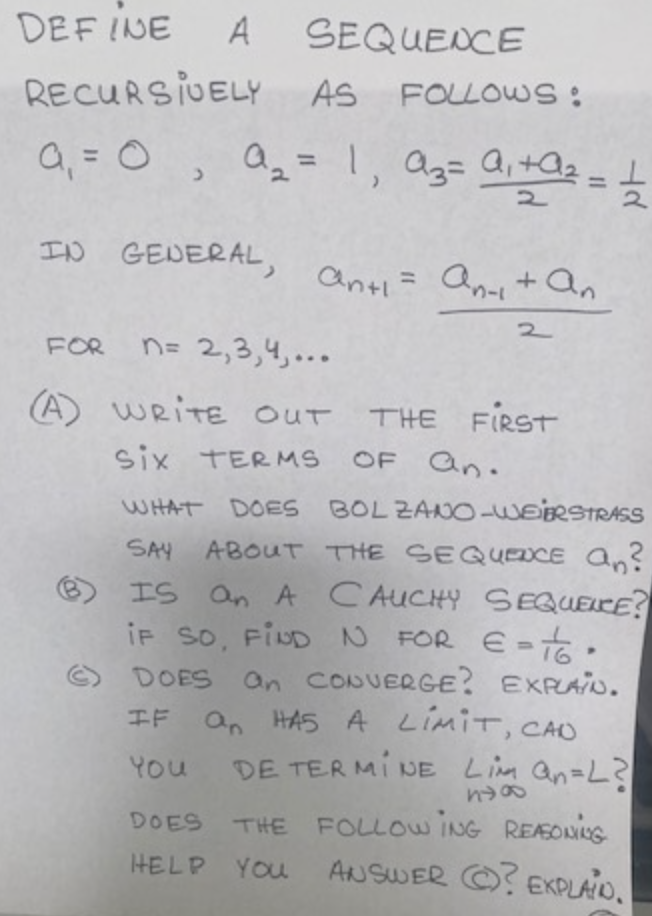 DEFINE A SEQUENCE
RECURSIVELY AS FOLLOWS:
a₁ = 0 , a₂ = 1, a₃ = (a₁+a₂)/2 = 1/2
IN GENERAL, aₙ₊₁ = (aₙ₋₁ + aₙ)/2
FOR n= 2,3,4,...
(A) WRITE OUT THE FIRST
SIX TERMS OF aₙ.
WHAT DOES BOLZANO-WEIERSTRASS
SAY ABOUT THE SEQUENCE aₙ?
(B) IS aₙ A CAUCHY SEQUENCE?
IF SO, FIND N FOR ϵ = 1/16.
(C) DOES aₙ CONVERGE? EXPLAIN.
IF aₙ HAS A LIMIT, CAN
YOU DETERMINE Lim n→∞ aₙ=L?
DOES THE FOLLOWING REASONING
HELP YOU ANSWER (C)? EXPLAIN.